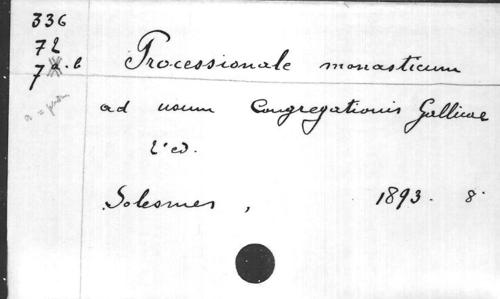 336
72
7 a.b
Processionale monasticum
ad usum Congregationis Gallicae
2ª ed.
Solesmes, 1893. 8°